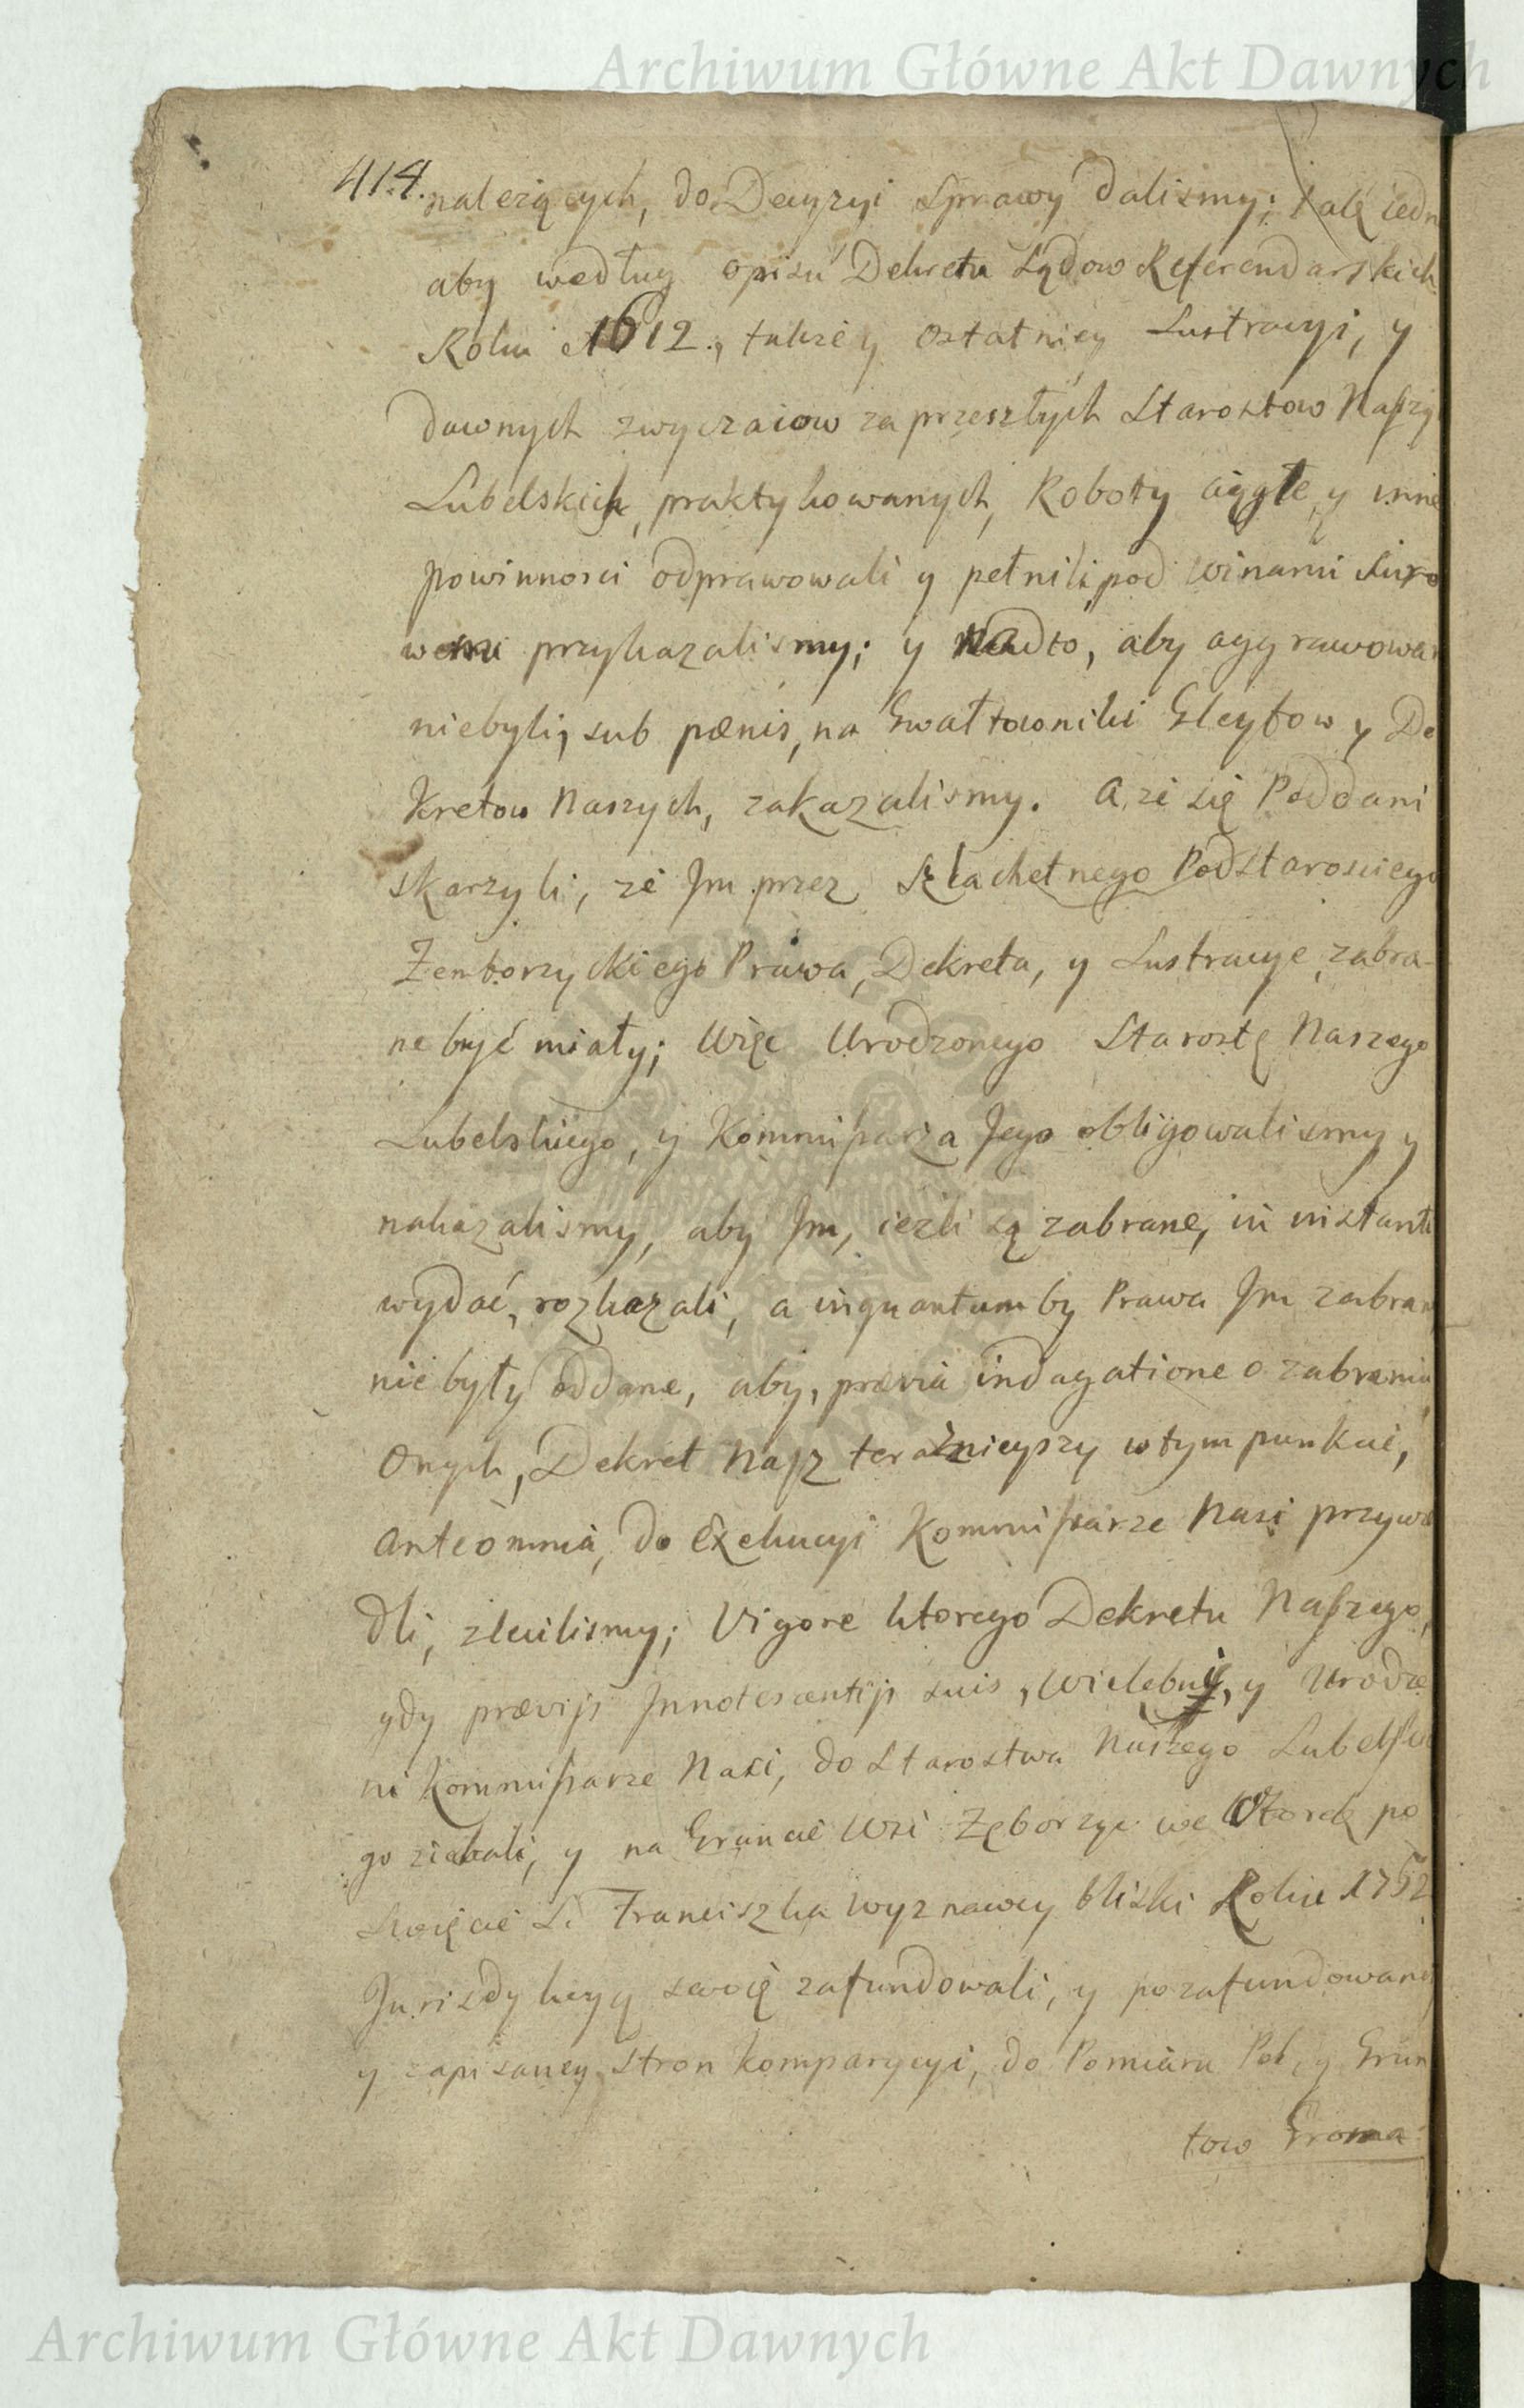 Archiwum Główne Akt Dawnych
414.
należących, do Decyzyi Sprawy dalismy; Tak iedn
aby według opisu Dekretu Sądow Referendarskich
Roku 1612., takze y ostatniey Lustracyi, y
dawnych zwyczaiow za przeszłych Starostow Naszy
Lubelskich, praktykowanych, Roboty ciągłe, y inne
powinnosci odprawowali y pełnili, pod winami Suro
wemi przykazalismy; y nadto, aby aggrawowan
niebyli, sub pænis, na Gwałtowniki Gleytow y De
kretow Naszych, zakazalismy. A ze się Poddani
skarzyli, ze Im przez Szlachetnego Podstarosciego
Zemborzyckiego Prawa, Dekreta, y Lustracye zabra-
ne być miały; Więc Urodzonego Starostę Naszego
Lubelskiego, y Kommissarza Jego obligowalismy y
nakazalismy, aby Im, iezli są zabrane, in instanti
wydać, rozkazali, a inquantum by Prawa Im zabran
nie były oddane, aby, prævia indagatione o zabraniu
Onych, Dekret Nasz teraznieyszy w tym punkcie,
ante omnia, do Exekucyi Kommissarze Nasi przywie
dli, zlecilismy; Vigore ktorego Dekretu Naszego,
gdy prævijs Innotescentijs suis, Wielebni, y Urodze
ni Kommissarze Nasi, do Starostwa Naszego Lubelskie
go ziechali, y na Gruncie Wsi Zęborzyc we Wtorek po
Swięcie S. Franciszka Wyznawcy bliski Roku 1752
Jurisdykcyą swoię zafundowali, y po zafundowaney
y zapisaney Stron komparycyi, do Pomiaru Pol, y Grun
tow Groma
Archiwum Główne Akt Dawnych